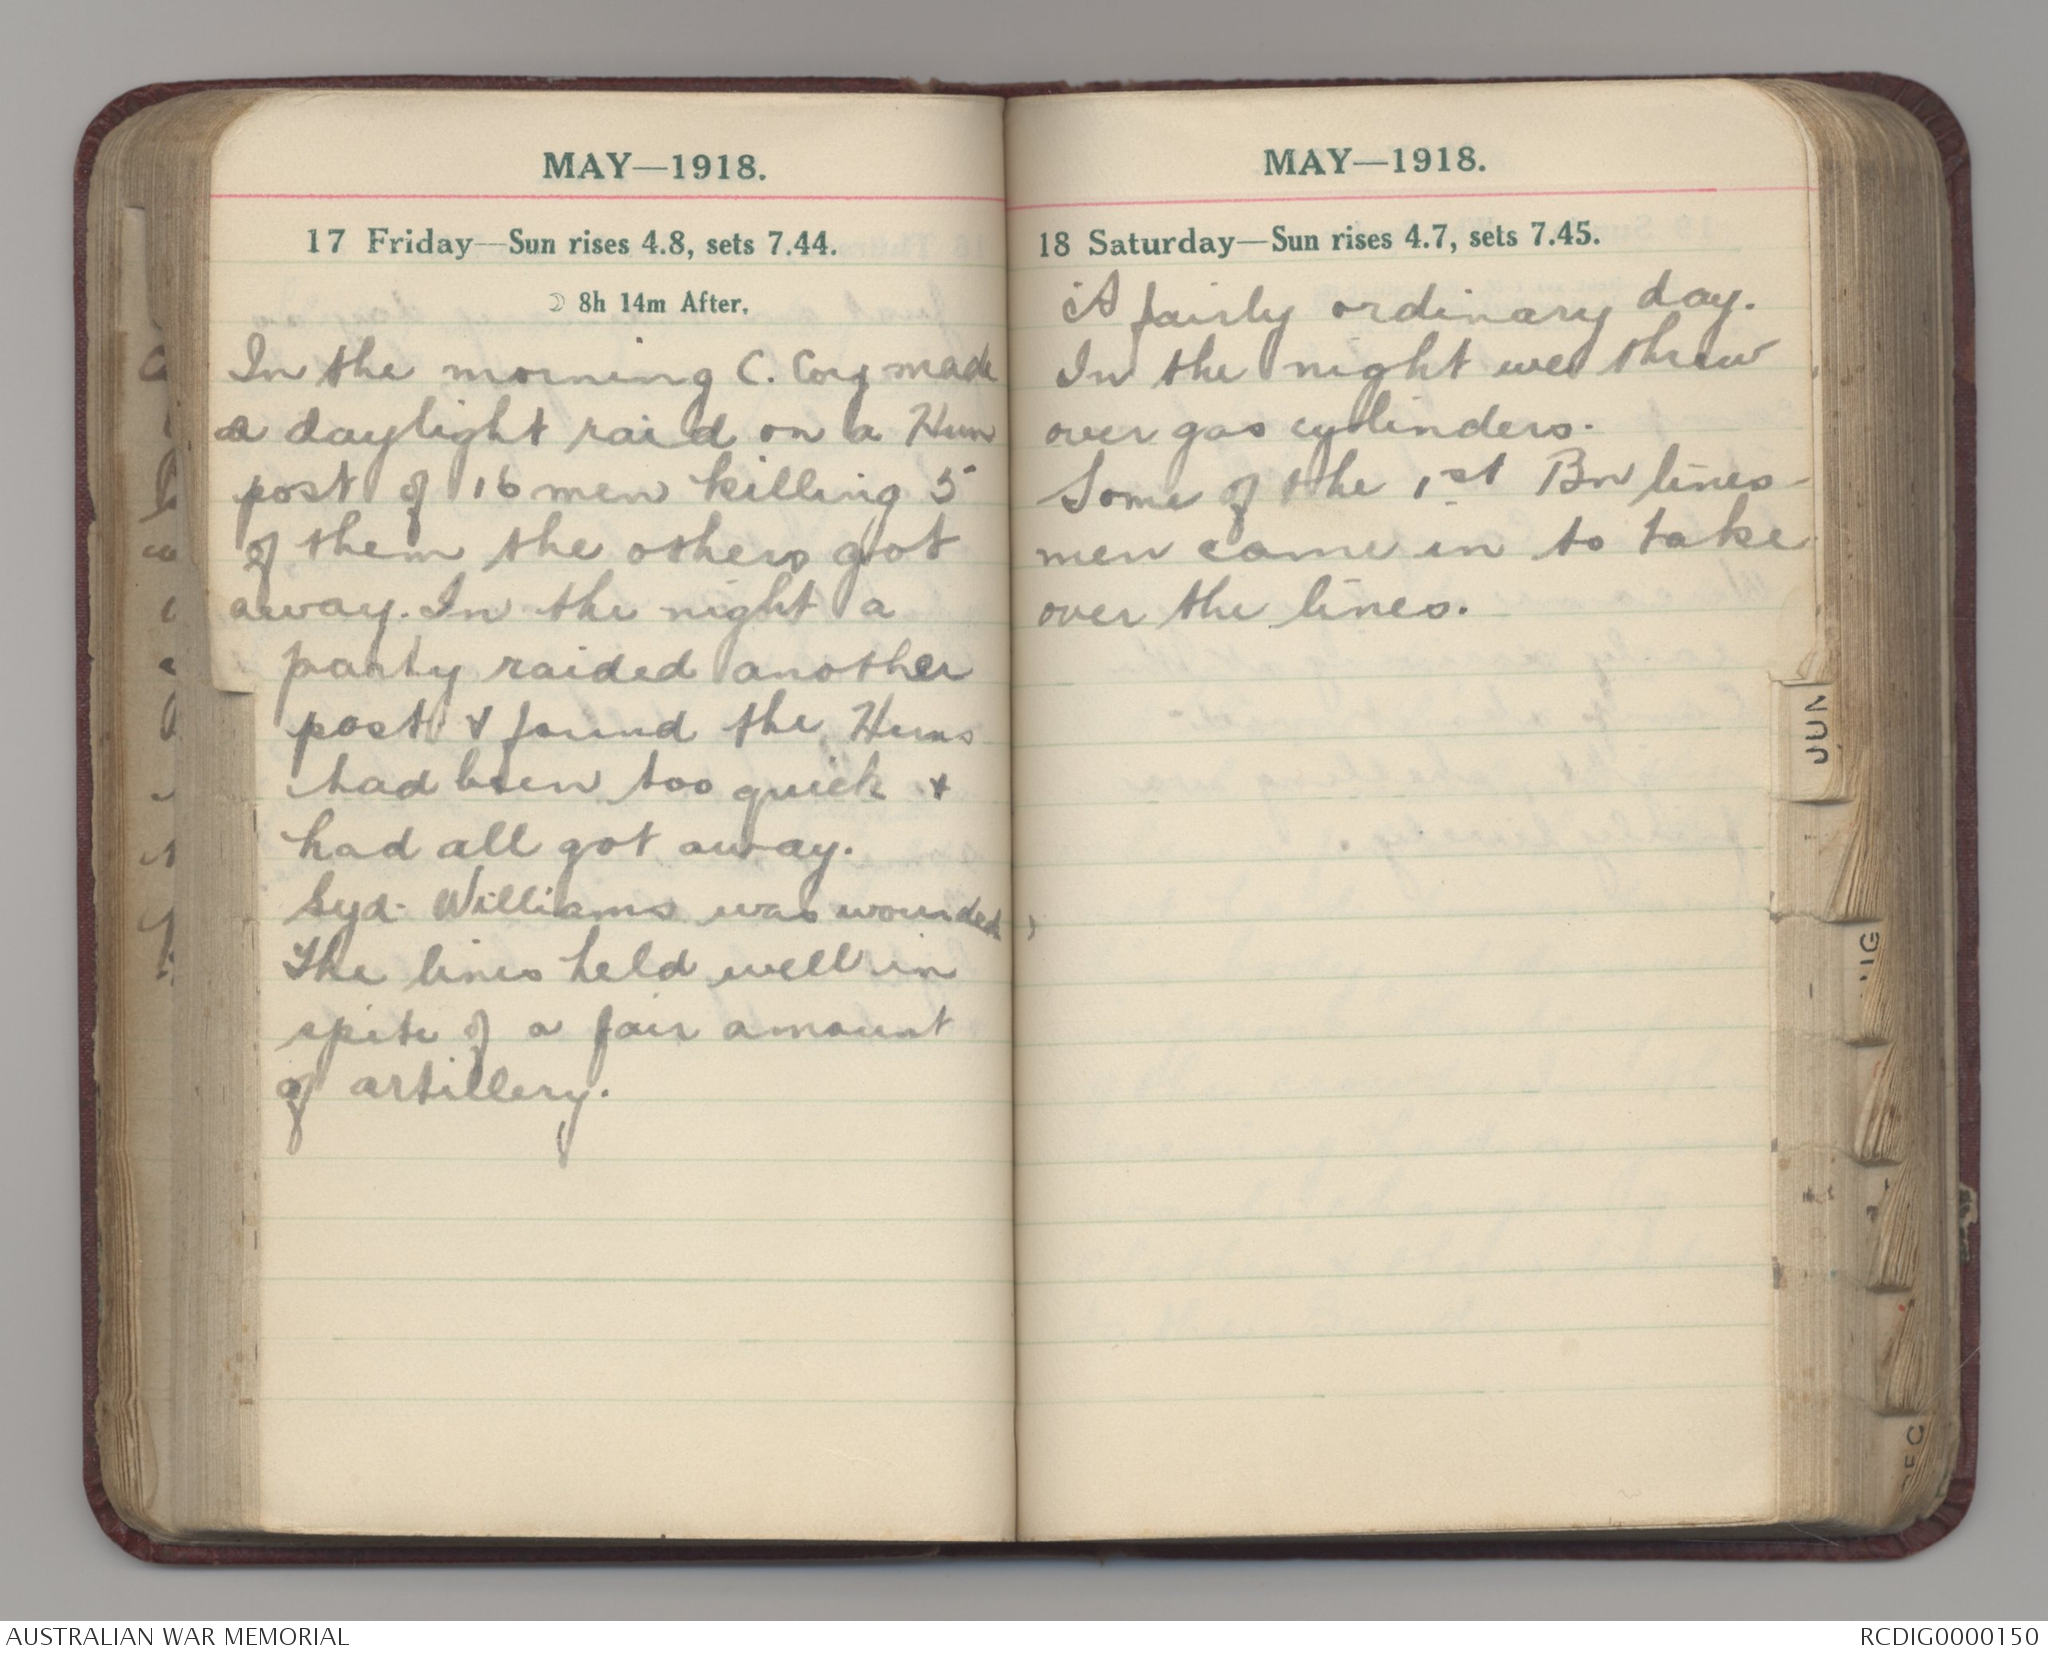 MAY—1918.
17 Friday—Sun rises 4.8, sets 7.44.
☽ 8h 14m After.
In the morning C. Coy made
a daylight raid on a Hun
post of 16 men killing 5
of them the others got
away. In the night a
party raided another
post & found the Huns
had been too quick &
had all got away.
Syd. Williams was wounded,
The lines held well in
spite of a fair amount
of artillery.
MAY—1918.
18 Saturday—Sun rises 4.7, sets 7.45.
A fairly ordinary day.
In the night we threw
over gas cylinders.
Some of the 1st Bn lines-
men came in to take
over the lines.
JUN
AUSTRALIAN WAR MEMORIAL
RCDIG0000150